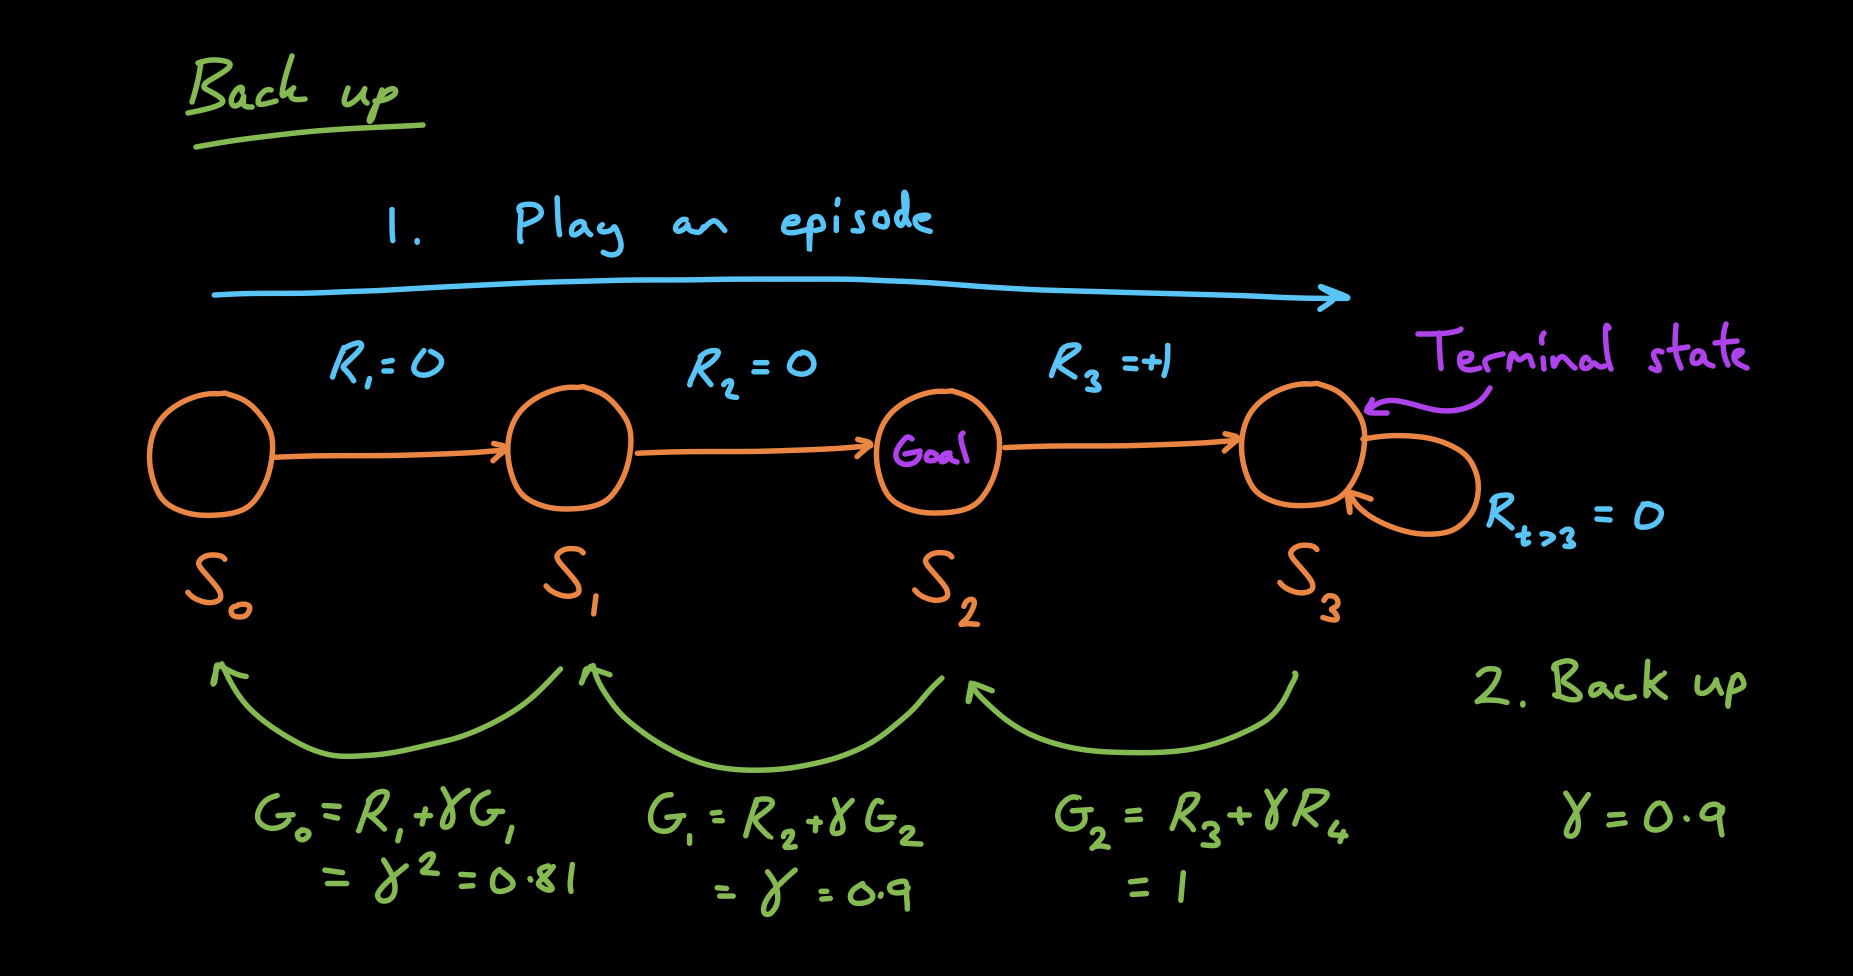 Back up
1. Play an episode
R₁ = 0
R₂ = 0
R₃ = +1
Terminal state
Goal
R_t>3 = 0
S₀
S₁
S₂
S₃
2. Back up
G₀ = R₁ + γG₁
= γ² = 0.81
G₁ = R₂ + γG₂
= γ = 0.9
G₂ = R₃ + γR₄
= 1
γ = 0.9